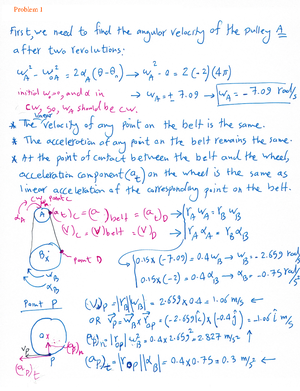 Problem 1
First, we need to find the angular velocity of the pulley A
after two revolutions:
ω_A² - ω_0A² = 2α_A(θ-θ_0) → ω_A² - 0 = 2(-2)(4π)
initial ω_A=0, and α in → ω_A = ± 7.09 → ω_A = -7.09 rad/s
CW, so, ω_A should be CW.
* The linear velocity of any point on the belt is the same.
* The acceleration of any point on the belt remains the same.
* At the point of contact between the belt and the wheel,
acceleration component (a_t) on the wheel is the same as
linear acceleration of the corresponding point on the belt.
CW point C
A (a_t)_C = (a)_belt = (a_t)_D → r_A ω_A = r_B ω_B
(V)_C = (V)_belt = (V)_D → r_A α_A = r_B α_B
B ω_B
α_B
point D
0.15x(-7.09) = 0.4 ω_B → ω_B = -2.659 rad/s
0.15x(-2) = 0.4 α_B → α_B = -0.75 rad/s²
Point P
(V_P) = |r_B||ω_B| = 2.659x0.4 = 1.06 m/s ←
OR V_P = ω_B x r_OP = (-2.659 k̂)x(-0.4 ĵ) = -1.06 î m/s
(a_P)_n = |r_OP| ω_B² = 0.4x2.659² = 2.827 m/s² ↑
(a_P)_t = |r_OP||α_B| = 0.4x0.75 = 0.3 m/s² ←
O
V_P
P
(a_P)_n
(a_P)_t